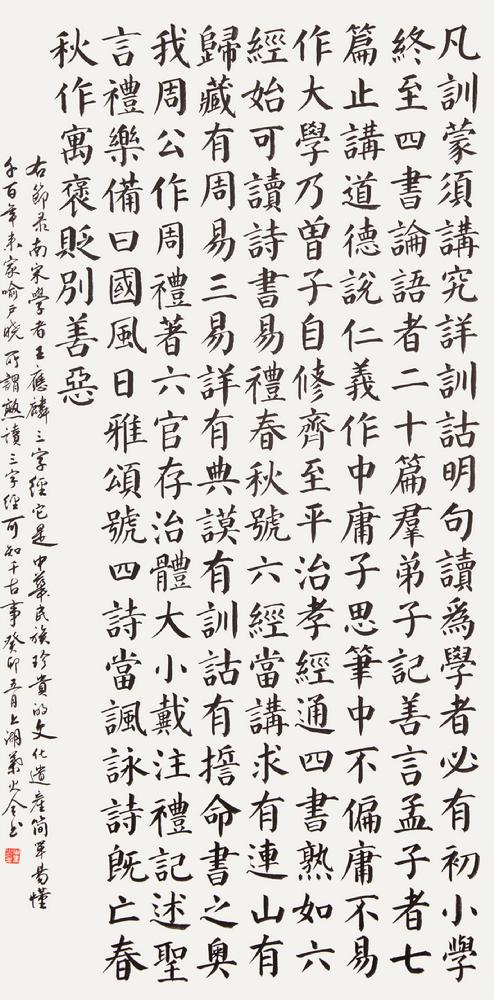 凡訓蒙須講究詳訓詁明句讀爲學者必有初小學
終至四書論語者二十篇羣弟子記善言孟子者七
篇止講道德說仁義作中庸子思筆中不偏庸不易
作大學乃曾子自修齊至平治孝經通四書熟如六
經始可讀詩書易禮春秋號六經當講求有連山有
歸藏有周易三易詳有典謨有訓詁有誓命書之奧
我周公作周禮著六官存治體大小戴注禮記述聖
言禮樂備曰國風曰雅頌號四詩當諷詠詩既亡春
秋作寓褒貶別善惡
右節录南宋學者王應麟三字經它是中華民族珍貴的文化遺產简单易懂
千百年来家喻户曉所謂熟讀三字經可知千古事癸卯五月上湖葉火全书